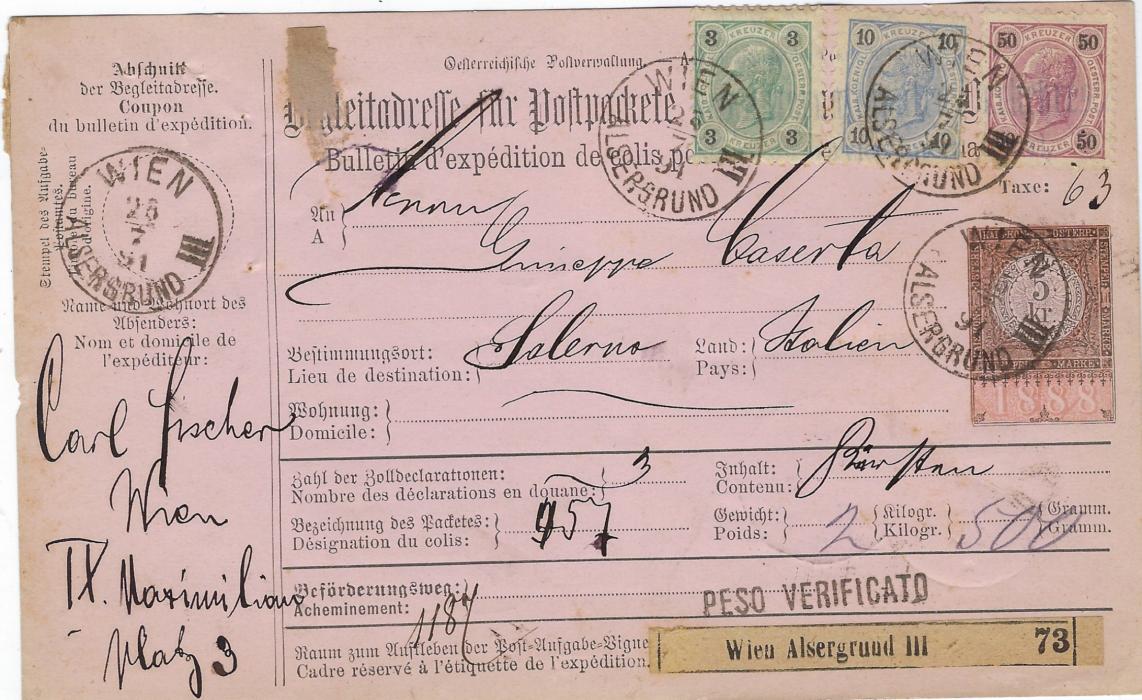 Abschnitt
der Begleitadresse.
Coupon
du bulletin d'expédition.
Stempel des Aufgabe-
Postamtes.
du bureau
d'origine.
WIEN
28
91
ALSERGRUND
III
Name und Wohnort des
Absenders:
Nom et domicile de
l'expéditeur:
Carl Fischer
Wien
IX. Maximilian
platz 3
Oesterreichische Postverwaltung.
Begleitadresse für Postpackete
Bulletin d'expédition de colis po
3 KREUZER 3
3 3
10 KREUZER 10
10 10
50 KREUZER 50
50
WIEN
91
ALSERGRUND
III
WIEN
ALSERGRUND
III
Taxe: 63
An
A
Giuseppe Caserta
Bestimmungsort:
Lieu de destination:
Salerno
Land:
Pays:
Italien
Wohnung:
Domicile:
ALSERGRUND
91
III
5
kr.
MARKE
1888
Zahl der Zolldeclarationen:
Nombre des déclarations en douane:
3
Inhalt:
Contenu:
Bürsten
Bezeichnung des Packetes:
Désignation du colis:
957
Gewicht:
Poids:
2
Kilogr.
Kilogr.
500
Gramm.
Gramm.
Beförderungsweg:
Acheminement:
1187
PESO VERIFICATO
Raum zum Aufkleben der Post-Aufgabe-Vigne
Cadre réservé à l'étiquette de l'expédition.
Wien Alsergrund III 73